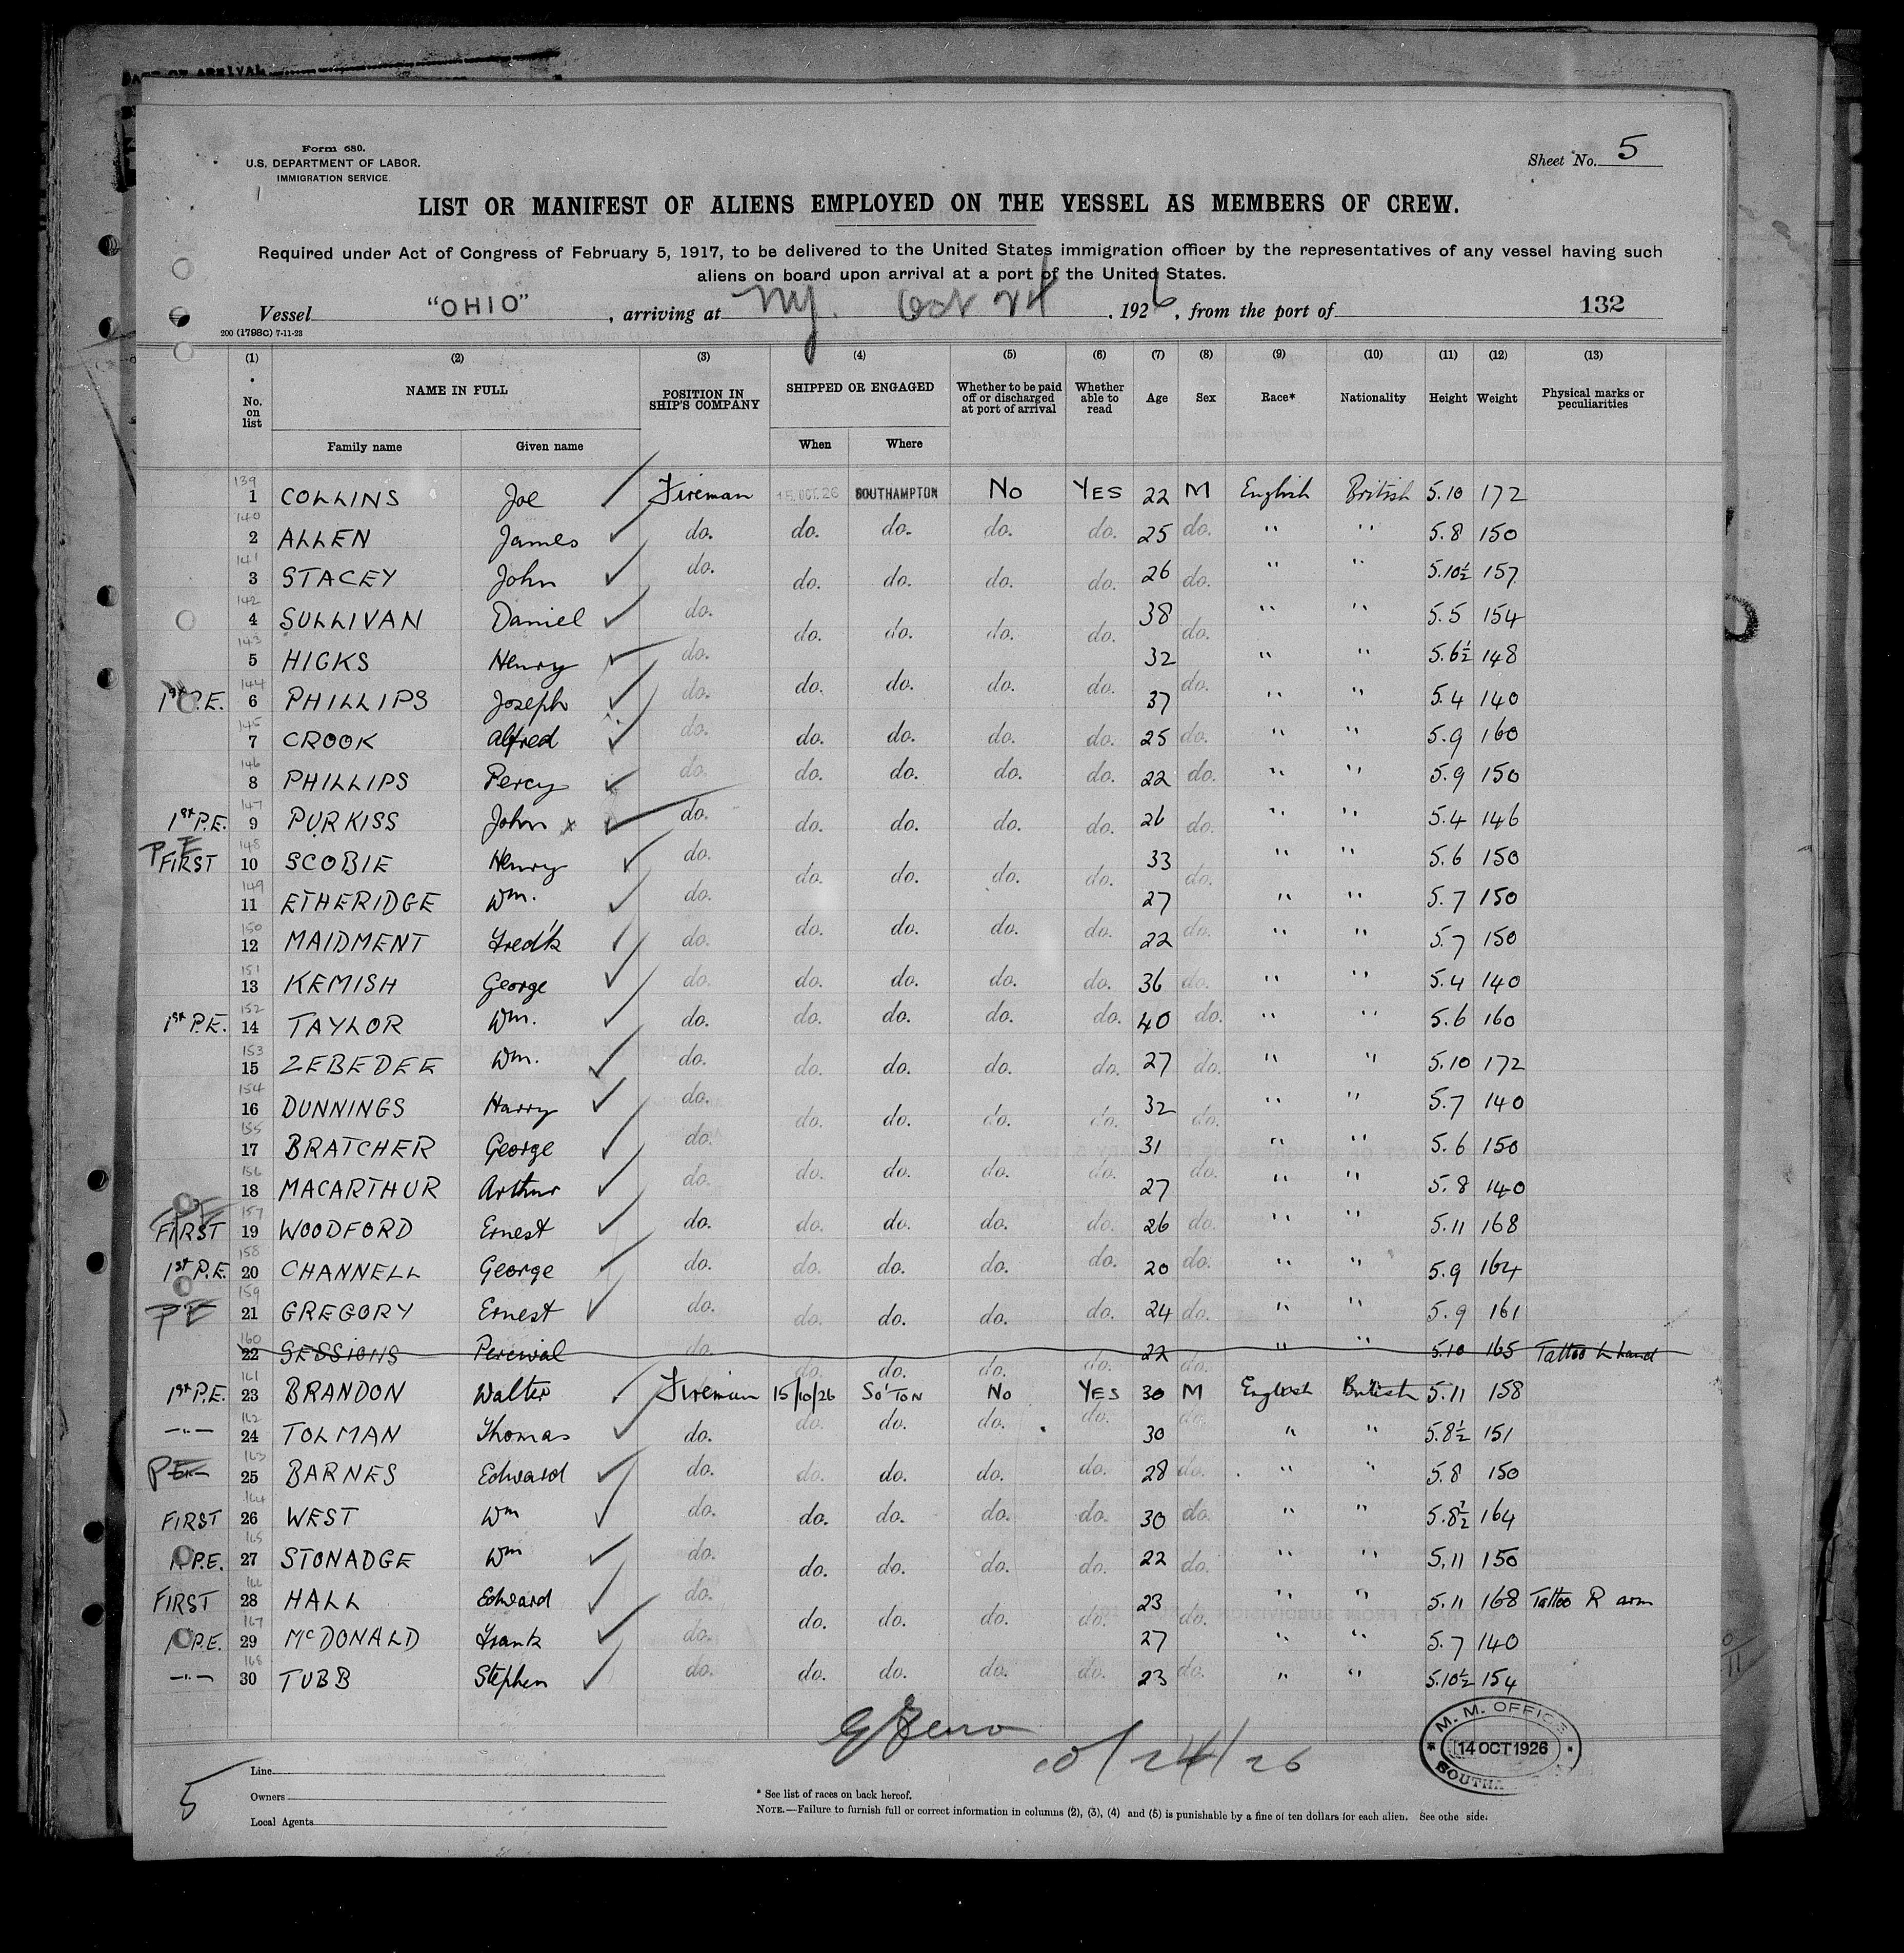 Form 680.
U.S. DEPARTMENT OF LABOR.
IMMIGRATION SERVICE
Sheet No. 5
LIST OR MANIFEST OF ALIENS EMPLOYED ON THE VESSEL AS MEMBERS OF CREW.
Required under Act of Congress of February 5, 1917, to be delivered to the United States immigration officer by the representatives of any vessel having such
aliens on board upon arrival at a port of the United States.
Vessel "OHIO", arriving at NY. Oct 24, 1926, from the port of 132
200 (1798c) 7-11-23
(1) (2) (3) (4) (5) (6) (7) (8) (9) (10) (11) (12) (13)
No. on list NAME IN FULL POSITION IN SHIP'S COMPANY SHIPPED OR ENGAGED Whether to be paid off or discharged at port of arrival Whether able to read Age Sex Race* Nationality Height Weight Physical marks or peculiarities
Family name Given name When Where
139 1 COLLINS Joe ✓ Fireman 15 OCT 26 SOUTHAMPTON No YES 22 M English British 5.10 172
140 2 ALLEN James ✓ do. do. do. do. do. 25 do. " " 5.8 150
141 3 STACEY John ✓ do. do. do. do. do. 26 do. " " 5.10½ 157
142 4 SULLIVAN Daniel ✓ do. do. do. do. do. 38 do. " " 5.5 154
143 5 HICKS Henry ✓ do. 32 " " 5.6½ 148
1st P.E. 144 6 PHILLIPS Joseph ✓ do. do. do. do. do. 37 do. " " 5.4 140
145 7 CROOK Alfred ✓ do. do. do. do. do. 25 do. " " 5.9 160
146 8 PHILLIPS Percy ✓ do. do. do. do. do. 22 do. " " 5.9 150
1st P.E. 147 9 PURKISS John x ✓ do. do. do. do. do. 26 do. " " 5.4 146
PE FIRST 148 10 SCOBIE Henry ✓ do. do. do. do. do. 33 do. " " 5.6 150
149 11 ETHERIDGE Wm. ✓ do. 27 " " 5.7 150
150 12 MAIDMENT Fred'k ✓ do. do. do. do. do. 22 do. " " 5.7 150
151 13 KEMISH George ✓ do. do. do. do. do. 36 do. " " 5.4 140
1st P.E. 152 14 TAYLOR Wm. ✓ do. do. do. do. do. 40 do. " " 5.6 160
153 15 ZEBEDEE Wm. ✓ do. do. do. do. do. 27 do. " " 5.10 172
154 16 DUNNINGS Harry ✓ do. do. do. do. do. 32 do. " " 5.7 140
155 17 BRATCHER George ✓ do. 31 " " 5.6 150
156 18 MACARTHUR Arthur ✓ do. do. do. do. do. 27 do. " " 5.8 140
PE FIRST 157 19 WOODFORD Ernest ✓ do. do. do. do. do. 26 do. " " 5.11 168
1st P.E. 158 20 CHANNELL George ✓ do. do. do. do. do. 20 do. " " 5.9 164
PE 159 21 GREGORY Ernest ✓ do. do. do. do. do. 24 do. " " 5.9 161
160 22 SESSIONS Percival do. do. do. do. do. 22 do. " " 5.10 165 Tattoo L hand
1st P.E. 161 23 BRANDON Walter ✓ Fireman 15/10/26 So'TON No YES 30 M English British 5.11 158
—"— 162 24 TOLMAN Thomas ✓ do. do. do. do. do. 30 do. " " 5.8½ 151
PE —"— 163 25 BARNES Edward ✓ do. do. do. do. do. 28 do. " " 5.8 150
FIRST 164 26 WEST Wm ✓ do. do. do. do. do. 30 do. " " 5.8½ 164
P.E. 165 27 STONADGE Wm ✓ do. do. do. do. do. 22 do. " " 5.11 150
FIRST 166 28 HALL Edward ✓ do. 23 " " 5.11 168 Tattoo R arm
P.E. 167 29 McDONALD Frank ✓ do. do. do. do. do. 27 do. " " 5.7 140
—"— 168 30 TUBB Stephen ✓ do. do. do. do. do. 23 do. " " 5.10½ 154
10/24/26
M. M. OFFICE
14 OCT 1926
5
Line
Owners
Local Agents
* See list of races on back hereof.
NOTE.—Failure to furnish full or correct information in columns (2), (3), (4) and (5) is punishable by a fine of ten dollars for each alien. See othe side.